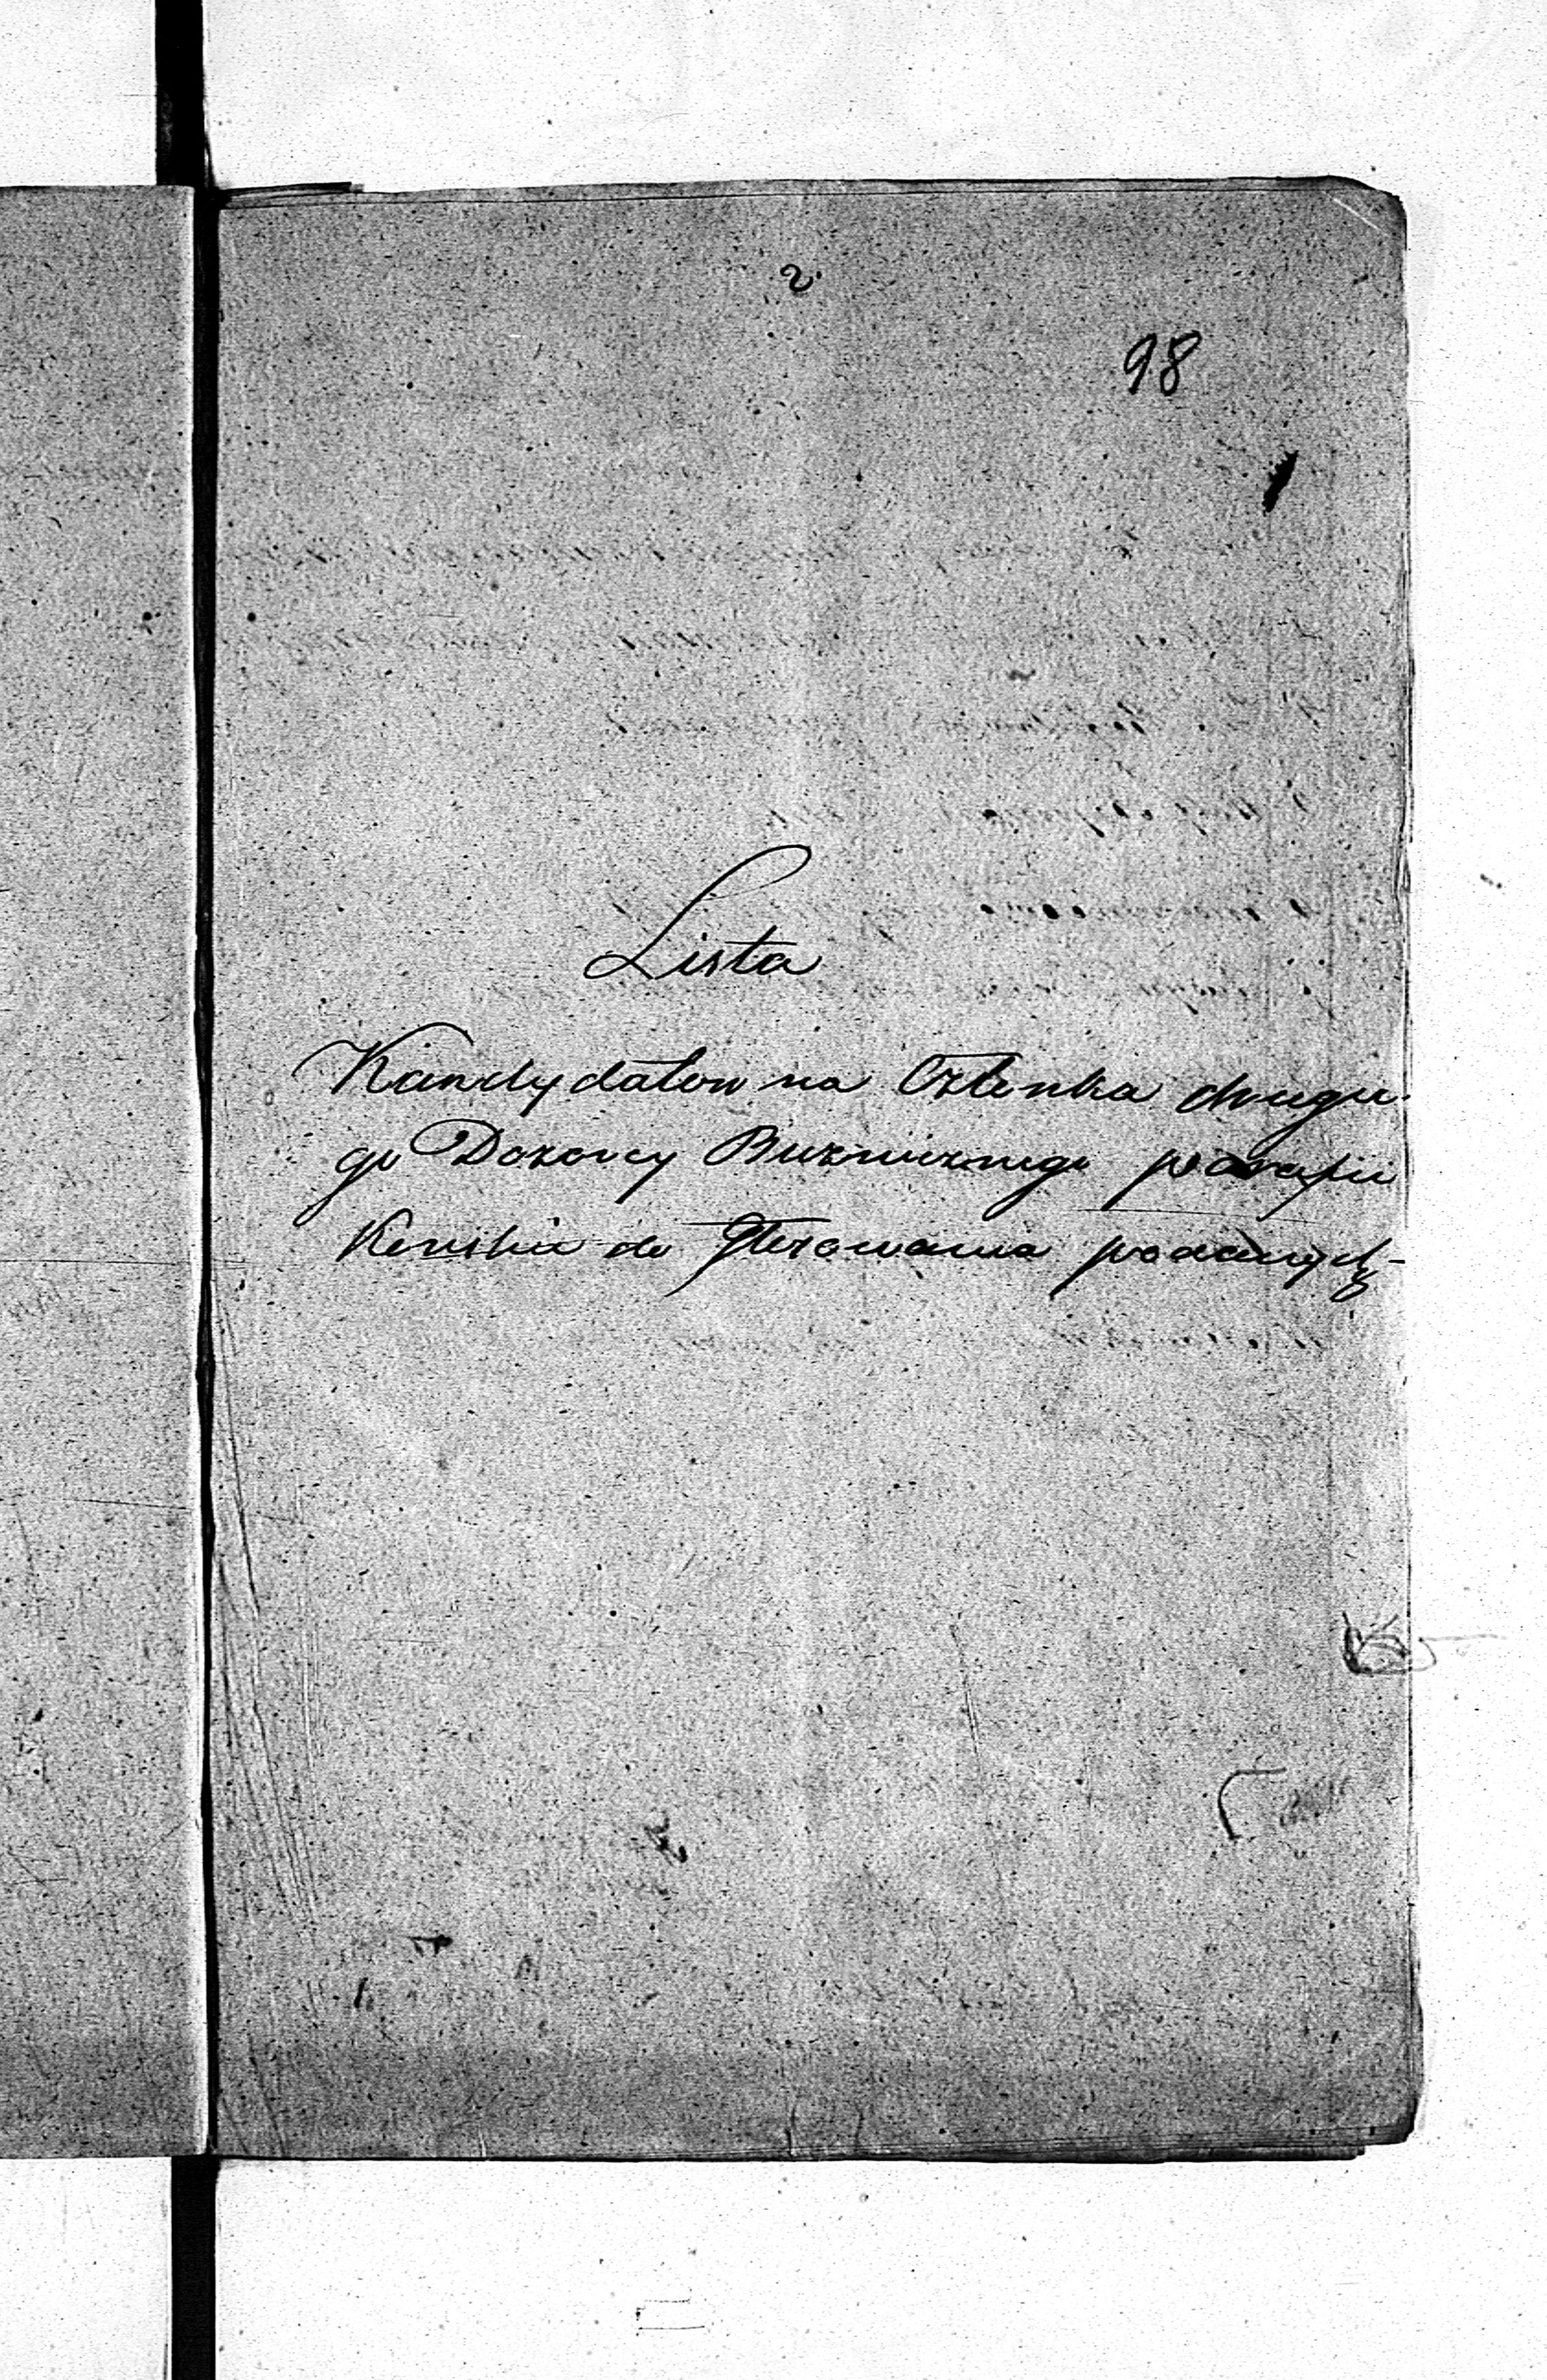 2.
98
Lista
Kandydatow na Członka drugie-
go Dozorcy Bużnicznego parafii
Konskie do Głosowania podanych